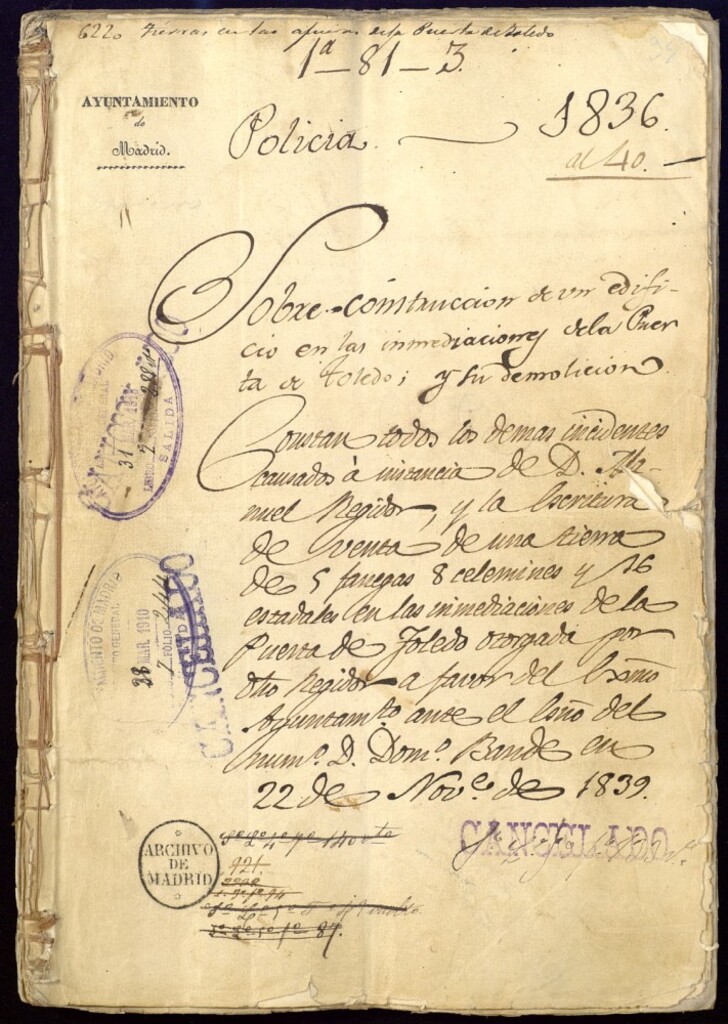 6220 Tierras en las afueras de la Puerta de Toledo
1ª-81-3.
AYUNTAMIENTO
de
Madrid.
Policia.
1836
al 40.
Sobre construccion de un edifi-
cio en las inmediaciones de la Puer
ta de Toledo; y su demolicion
Constan todos los demas incidentes
causados à instancia de D. Ma-
nuel Regidor, y la Escritura
de venta de una tierra
de 5 fanegas 8 celemines y 16
estadales en las inmediaciones de la
Puerta de Toledo otorgada por
dho Regidor a favor del Excmo
Ayuntamto ante el Esño del
numº. D. Domº. Bande en
22 de Nove. de 1839.
31 1910
SALIDA
CANCELADO
28 MAR. 1910
FOLIO 244
CANCELADO
ARCHIVO
DE
MADRID
921.